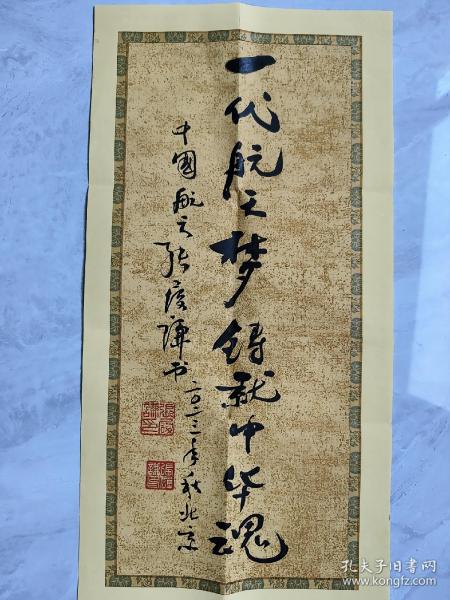 一代航天梦铸就中华魂
中國航天张履谦书
二〇二三年秋北京
孔夫子旧书网
www.kongfz.com